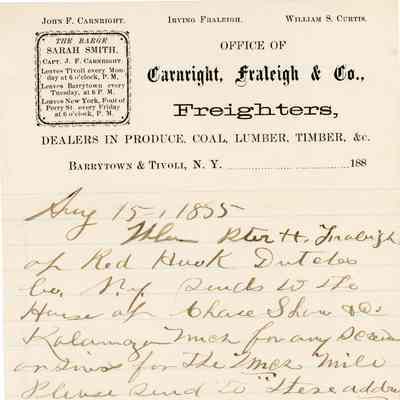 John F. Carnright. Irving Fraleigh. William S. Curtis.
THE BARGE
SARAH SMITH,
CAPT. J. F. CARNRIGHT.
Leaves Tivoli every Mon-
day at 6 o'clock, P. M.
Leaves Barrytown every
Tuesday, at 6 P. M.
Leaves New York, Foot of
Perry St. every Friday
at 6 o'clock, P. M.
OFFICE OF
Carnright, Fraleigh & Co.,
Freighters,
DEALERS IN PRODUCE, COAL, LUMBER, TIMBER, &c.
Barrytown & Tivoli, N. Y. 188
Aug 15, 1885
When Peter H. Fraleigh
of Red Hook Dutches
Co. N.Y. sends to the
House of Chase Shaw & Co
Kalamazoo Mich for any
or for The Mich Mile
Please send to these